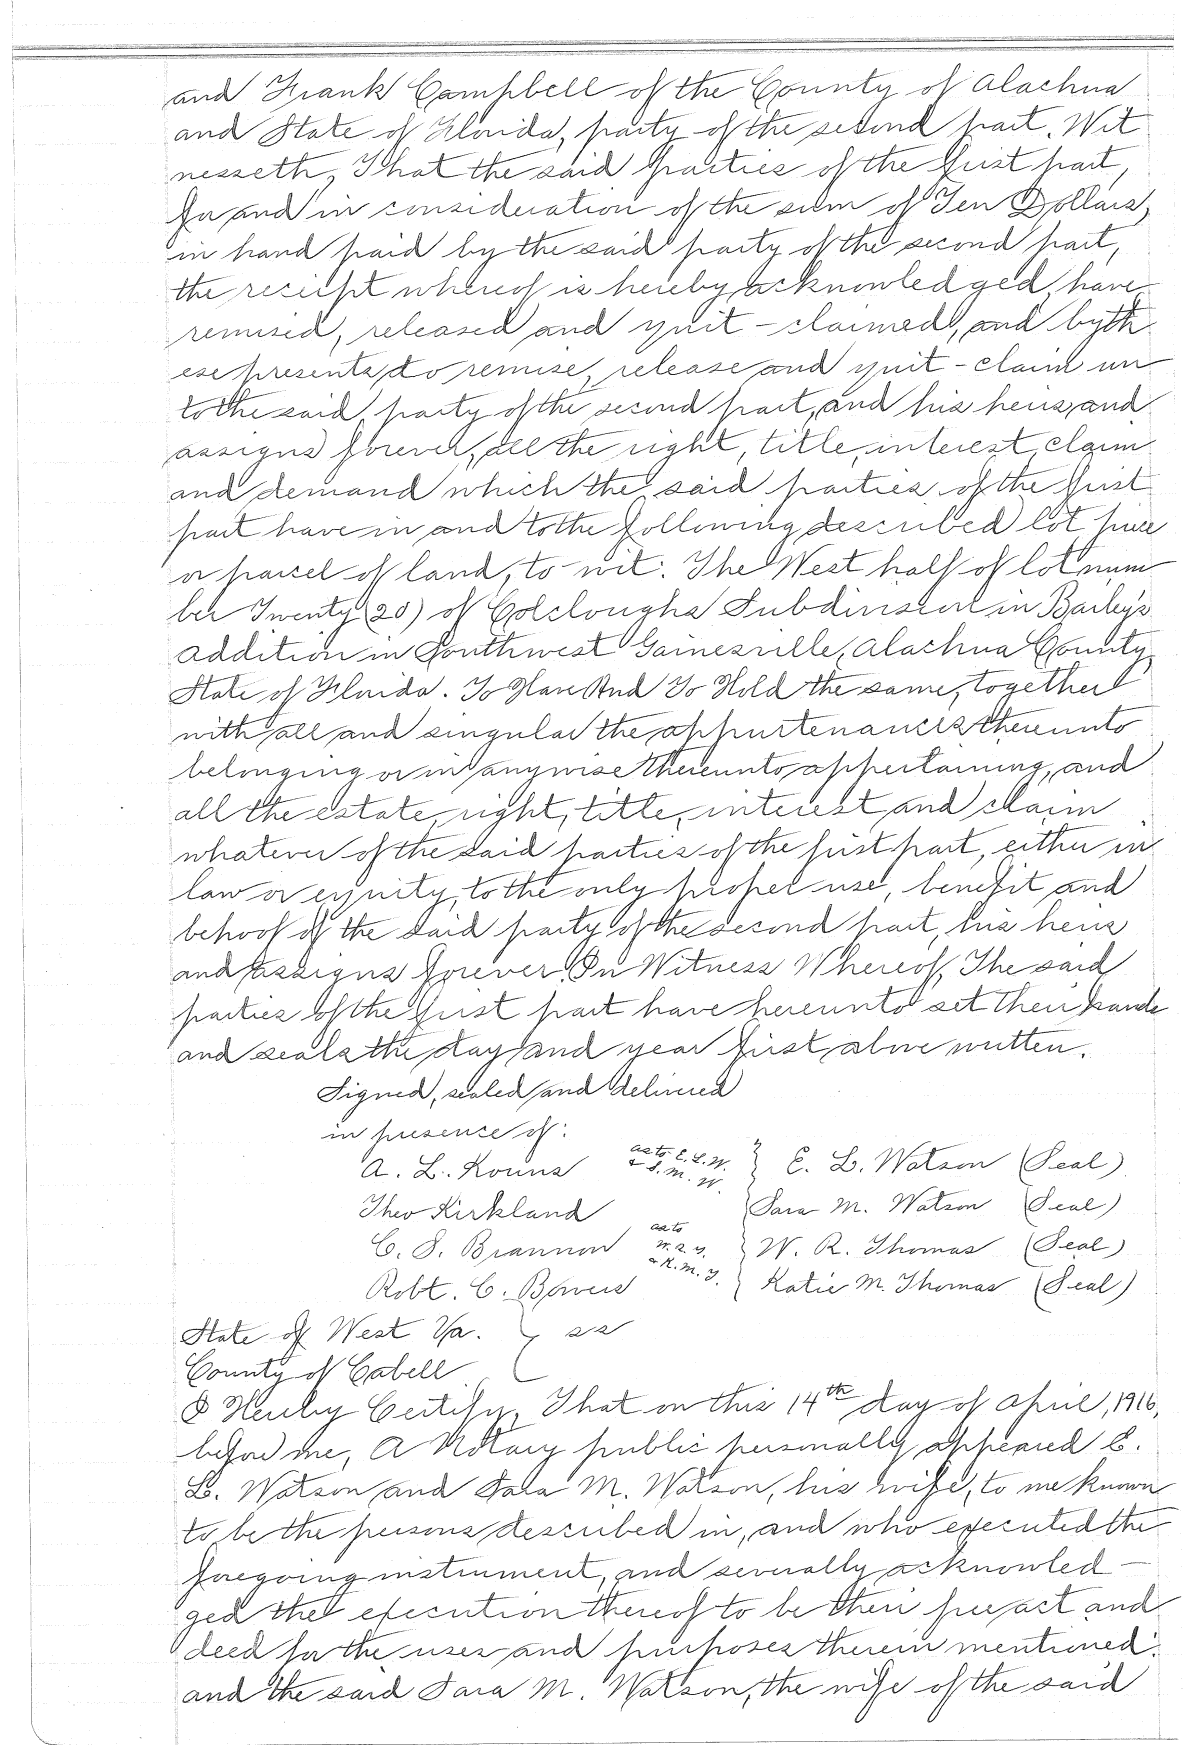 and Frank Campbell of the County of Alachua
and State of Florida, party of the second part. Wit
nesseth, That the said parties of the first part,
for and in consideration of the sum of Ten Dollars,
in hand paid by the said party of the second part,
the receipt whereof is hereby acknowledged, have
remised, released and quit-claimed, and by th
ese presents do remise, release and quit-claim un
to the said party of the second part, and his heirs and
assigns forever, all the right, title, interest, claim
and demand which the said parties of the first
part have in and to the following described lot piece
or parcel of land, to wit: The West half of lot num
ber Twenty (20) of Colcloughs Subdivision in Bailey's
addition in Southwest Gainesville, Alachua County,
State of Florida. To Have And To Hold the same, together
with all and singular the appurtenances thereunto
belonging or in anywise thereunto appertaining, and
all the estate, right, title, interest and claim
whatever of the said parties of the first part, either in
law or equity, to the only proper use, benefit and
behoof of the said party of the second part, his heirs
and assigns forever. In Witness Whereof, The said
parties of the first part have hereunto set their hands
and seals the day and year first above written.
Signed, sealed and delivered
in presence of:
A. L. Kouns as to E. L. W. & S. M. W. } E. L. Watson (Seal)
Theo Kirkland } Sara M. Watson (Seal)
C. S. Brannon as to W. R. T. & K. M. T. } W. R. Thomas (Seal)
Robt. C. Bowers } Katie M. Thomas (Seal)
State of West Va. } ss
County of Cabell
I Hereby Certify, That on this 14th day of April, 1916,
before me, A Notary public personally appeared E.
L. Watson and Sara M. Watson, his wife, to me known
to be the persons described in, and who executed the
foregoing instrument, and severally acknowled-
ged the execution thereof to be their free act and
deed for the uses and purposes therein mentioned:
and the said Sara M. Watson, the wife of the said